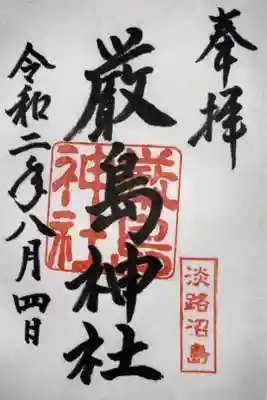 奉拝
厳島神社
厳島
神社
淡路沼島
令和二年八月四日